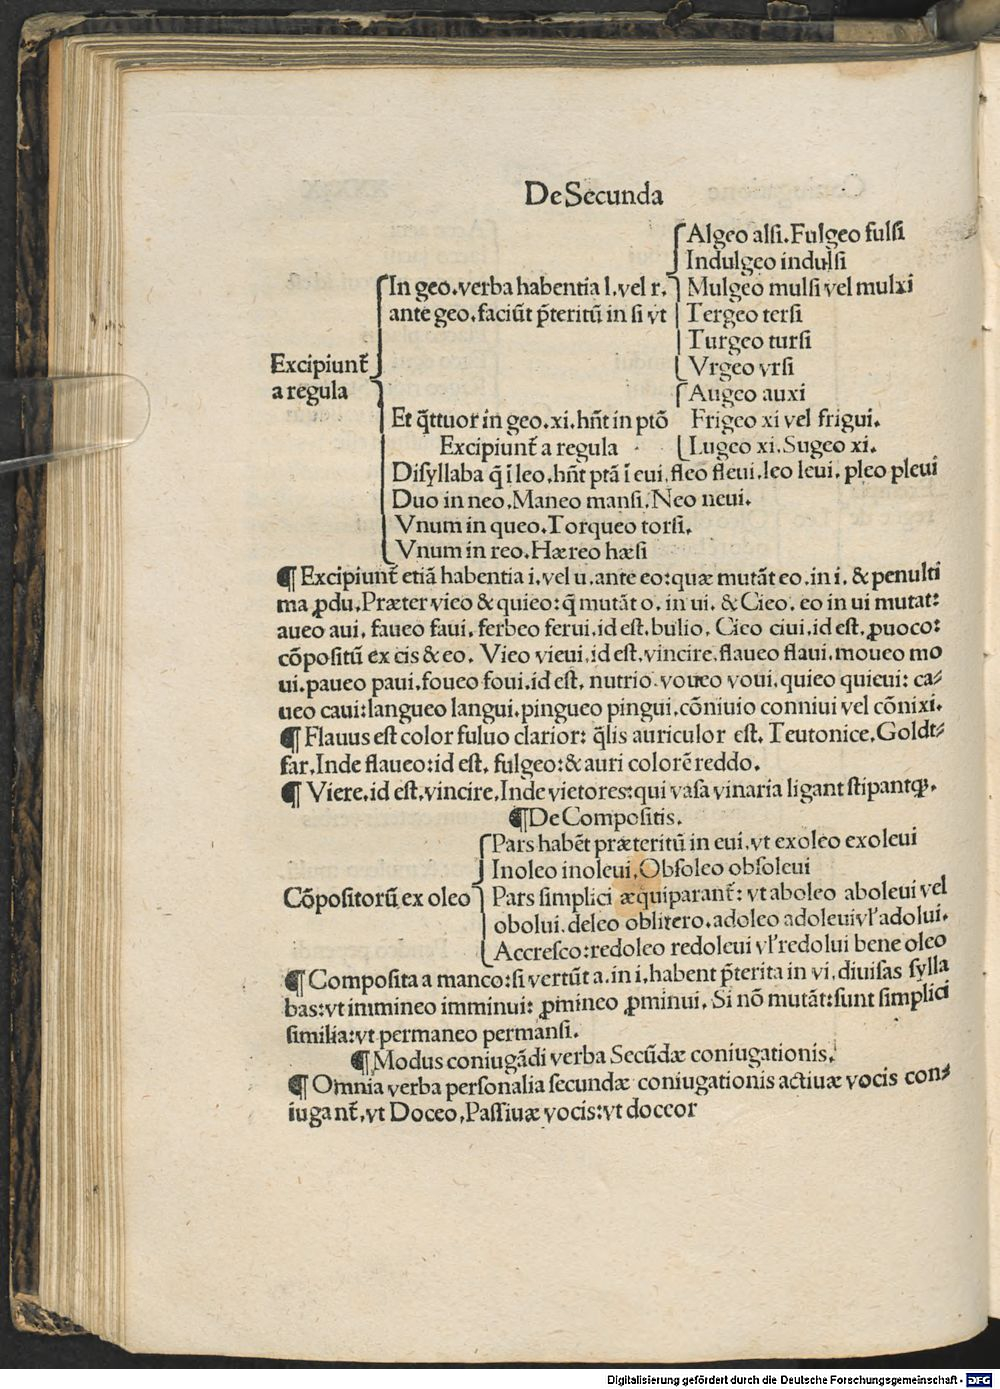 De Secunda
Algeo alsi. Fulgeo fulsi
Indulgeo indulsi
In geo. verba habentia l. vel r. Mulgeo mulsi vel mulxi
ante geo. faciūt p̄teritū in si vt Tergeo tersi
Turgeo tursi
Excipiunt᷑ Vrgeo vrsi
a regula Augeo auxi
Et q̄ttuor in geo. xi. hn̄t in ptō Frigeo xi vel frigui.
Excipiunt᷑ a regula Lugeo xi. Sugeo xi.
Disyllaba q̄ ī leo. hn̄t ptā ī eui. fleo fleui. leo leui. pleo pleui
Duo in neo. Maneo mansi. Neo neui.
Vnum in queo. Torqueo torsi.
Vnum in reo. Hæreo hæsi
¶ Excipiunt᷑ etiā habentia i. vel u. ante eo: quæ mutāt eo. in i. & penulti
ma ꝓdu. Præter vieo & quieo: q̄ mutāt o. in ui. & Cieo. eo in ui mutat:
aueo aui. faueo faui. ferbeo ferui. id est. bulio. Cieo ciui. id est. ꝓuoco:
cōpositū ex cis & eo. Vieo vieui. id est. vincire. flaueo flaui. moueo mo
ui. paueo paui. foueo foui. id est. nutrio. voueo voui. quieo quieui: ca⸗
ueo caui: langueo langui. pingueo pingui. cōniuio conniui vel cōnixi.
¶ Flauus est color fuluo clarior: q̄lis auriculor est. Teutonice. Goldt⸗
far. Inde flaueo: id est. fulgeo: & auri colorē reddo.
¶ Viere. id est. vincire. Inde vietores: qui vasa vinaria ligant stipantqꝫ.
¶ De Compositis.
Pars habēt præteritū in eui. vt exoleo exoleui
Inoleo inoleui. Obsoleo obsoleui
Cōpositorū ex oleo Pars simplici æquiparant᷑: vt aboleo aboleui vel
obolui. deleo oblitero. adoleo adoleui vl' adolui.
Accresco: redoleo redoleui vl' redolui bene oleo
¶ Composita a manco: si vertūt a. in i. habent p̄terita in vi. diuisas sylla
bas: vt immineo imminui: ꝓmineo ꝓminui. Si nō mutāt: sunt simplici
similia: vt permaneo permansi.
¶ Modus coniugādi verba Secūdæ coniugationis.
¶ Omnia verba personalia secundæ coniugationis actiuæ vocis con⸗
iugant᷑. vt Doceo. Passiuæ vocis: vt doceor
Digitalisierung gefördert durch die Deutsche Forschungsgemeinschaft - DFG